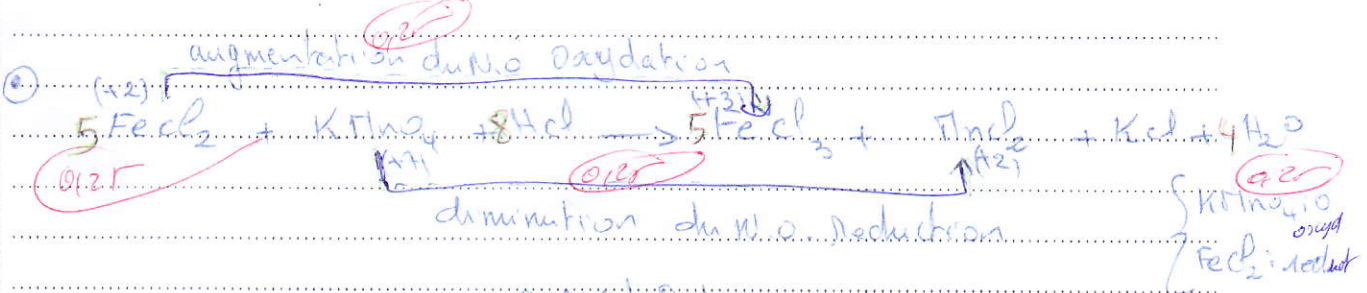 0,25
augmentation du N.O Oxydation
(+2) (+3)
5 FeCl2 + KMnO4 + 8HCl → 5FeCl3 + MnCl2 + KCl + 4H2O
0,25 (+7) 0,25 (+2) 0,25
diminution du N.O. Reduction
{ KMnO4: oxyd
FeCl2: reduct